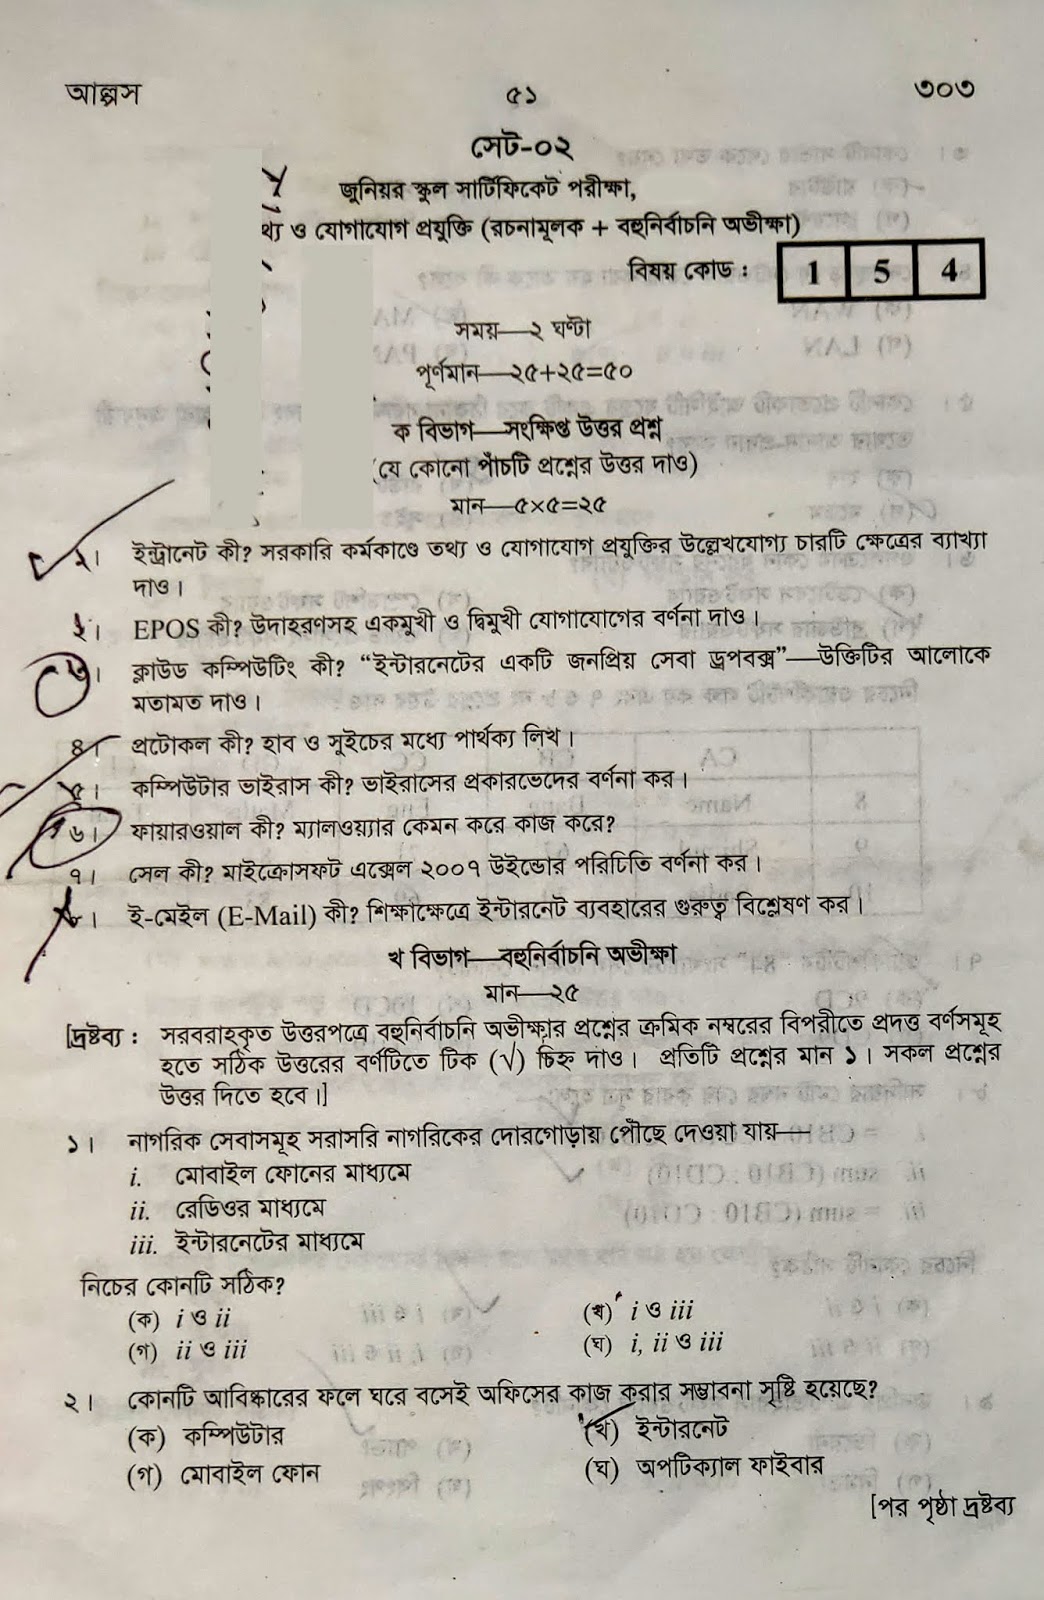 আল্পস ৫১ ৩০৩
সেট-০২
জুনিয়র স্কুল সার্টিফিকেট পরীক্ষা,
থ্য ও যোগাযোগ প্রযুক্তি (রচনামূলক + বহুনির্বাচনি অভীক্ষা)
বিষয় কোড : 1 5 4
সময়—২ ঘণ্টা
পূর্ণমান—২৫+২৫=৫০
ক বিভাগ—সংক্ষিপ্ত উত্তর প্রশ্ন
(যে কোনো পাঁচটি প্রশ্নের উত্তর দাও)
মান—৫×৫=২৫
১। ইন্ট্রানেট কী? সরকারি কর্মকাণ্ডে তথ্য ও যোগাযোগ প্রযুক্তির উল্লেখযোগ্য চারটি ক্ষেত্রের ব্যাখ্যা
দাও।
২। EPOS কী? উদাহরণসহ একমুখী ও দ্বিমুখী যোগাযোগের বর্ণনা দাও।
৩। ক্লাউড কম্পিউটিং কী? “ইন্টারনেটের একটি জনপ্রিয় সেবা ড্রপবক্স”—উক্তিটির আলোকে
মতামত দাও।
৪। প্রটোকল কী? হাব ও সুইচের মধ্যে পার্থক্য লিখ।
৫। কম্পিউটার ভাইরাস কী? ভাইরাসের প্রকারভেদের বর্ণনা কর।
৬। ফায়ারওয়াল কী? ম্যালওয়্যার কেমন করে কাজ করে?
৭। সেল কী? মাইক্রোসফট এক্সেল ২০০৭ উইন্ডোর পরিচিতি বর্ণনা কর।
৮। ই-মেইল (E-Mail) কী? শিক্ষাক্ষেত্রে ইন্টারনেট ব্যবহারের গুরুত্ব বিশ্লেষণ কর।
খ বিভাগ—বহুনির্বাচনি অভীক্ষা
মান—২৫
[দ্রষ্টব্য : সরবরাহকৃত উত্তরপত্রে বহুনির্বাচনি অভীক্ষার প্রশ্নের ক্রমিক নম্বরের বিপরীতে প্রদত্ত বর্ণসমূহ
হতে সঠিক উত্তরের বর্ণটিতে টিক (√) চিহ্ন দাও। প্রতিটি প্রশ্নের মান ১। সকল প্রশ্নের
উত্তর দিতে হবে।]
১। নাগরিক সেবাসমূহ সরাসরি নাগরিকের দোরগোড়ায় পৌঁছে দেওয়া যায়—
i. মোবাইল ফোনের মাধ্যমে
ii. রেডিওর মাধ্যমে
iii. ইন্টারনেটের মাধ্যমে
নিচের কোনটি সঠিক?
(ক) i ও ii (খ) i ও iii
(গ) ii ও iii (ঘ) i, ii ও iii
২। কোনটি আবিষ্কারের ফলে ঘরে বসেই অফিসের কাজ করার সম্ভাবনা সৃষ্টি হয়েছে?
(ক) কম্পিউটার (খ) ইন্টারনেট
(গ) মোবাইল ফোন (ঘ) অপটিক্যাল ফাইবার
[পর পৃষ্ঠা দ্রষ্টব্য